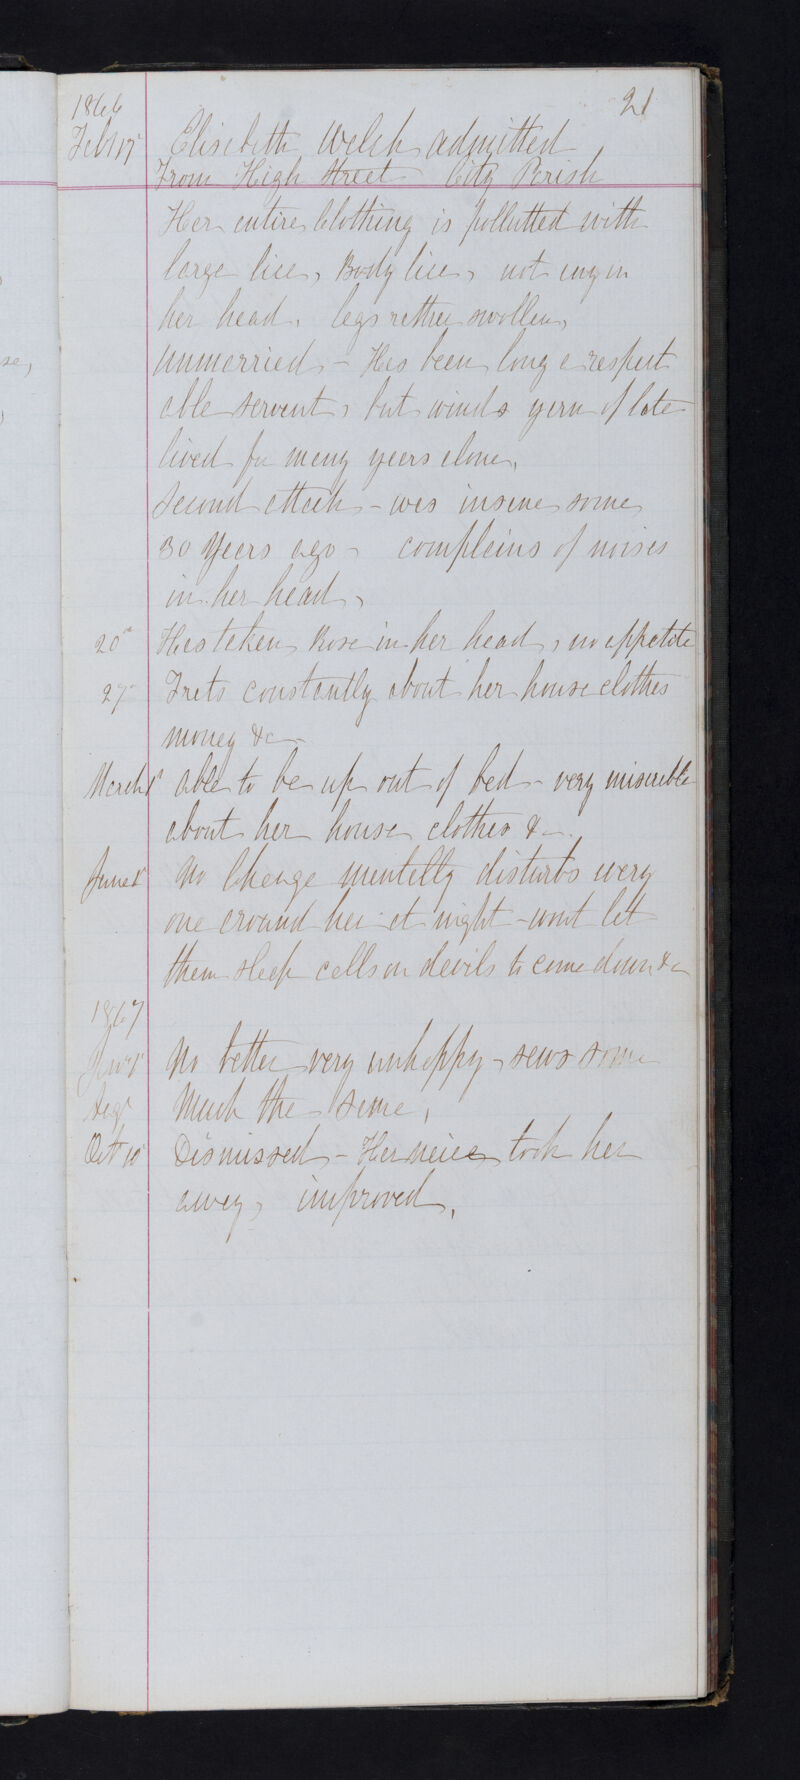 21
1866
Feby 17 Elisebeth Welsh admitted
From High Street City Perish
Her entire Clothing is pollutted with
large lice, Body lice, not eny in
her head, legs rether swollen,
Unmerried - Hes been long e respect
able servent, but winds yern of late
lived for meny yeers elone,
Second etteck - wes insene some
30 Yeers ego - compleins of noises
in her head,
20th Hes teken Rose in her head, no eppetite
27 Frets constantly about her house clothes
money &c
Merch 1st able to be up out of bed - very miserable
about her house clothes &c.
June 1st No Chenge mentelly disturbs every
one eround her et night - wont let
them sleep cells on devils to come down &c
1867
Jeny 1st No better very unheppy - sews some
Augt Much the seme,
Oct 10 Dismissed - Her neice took her
ewey, improved,